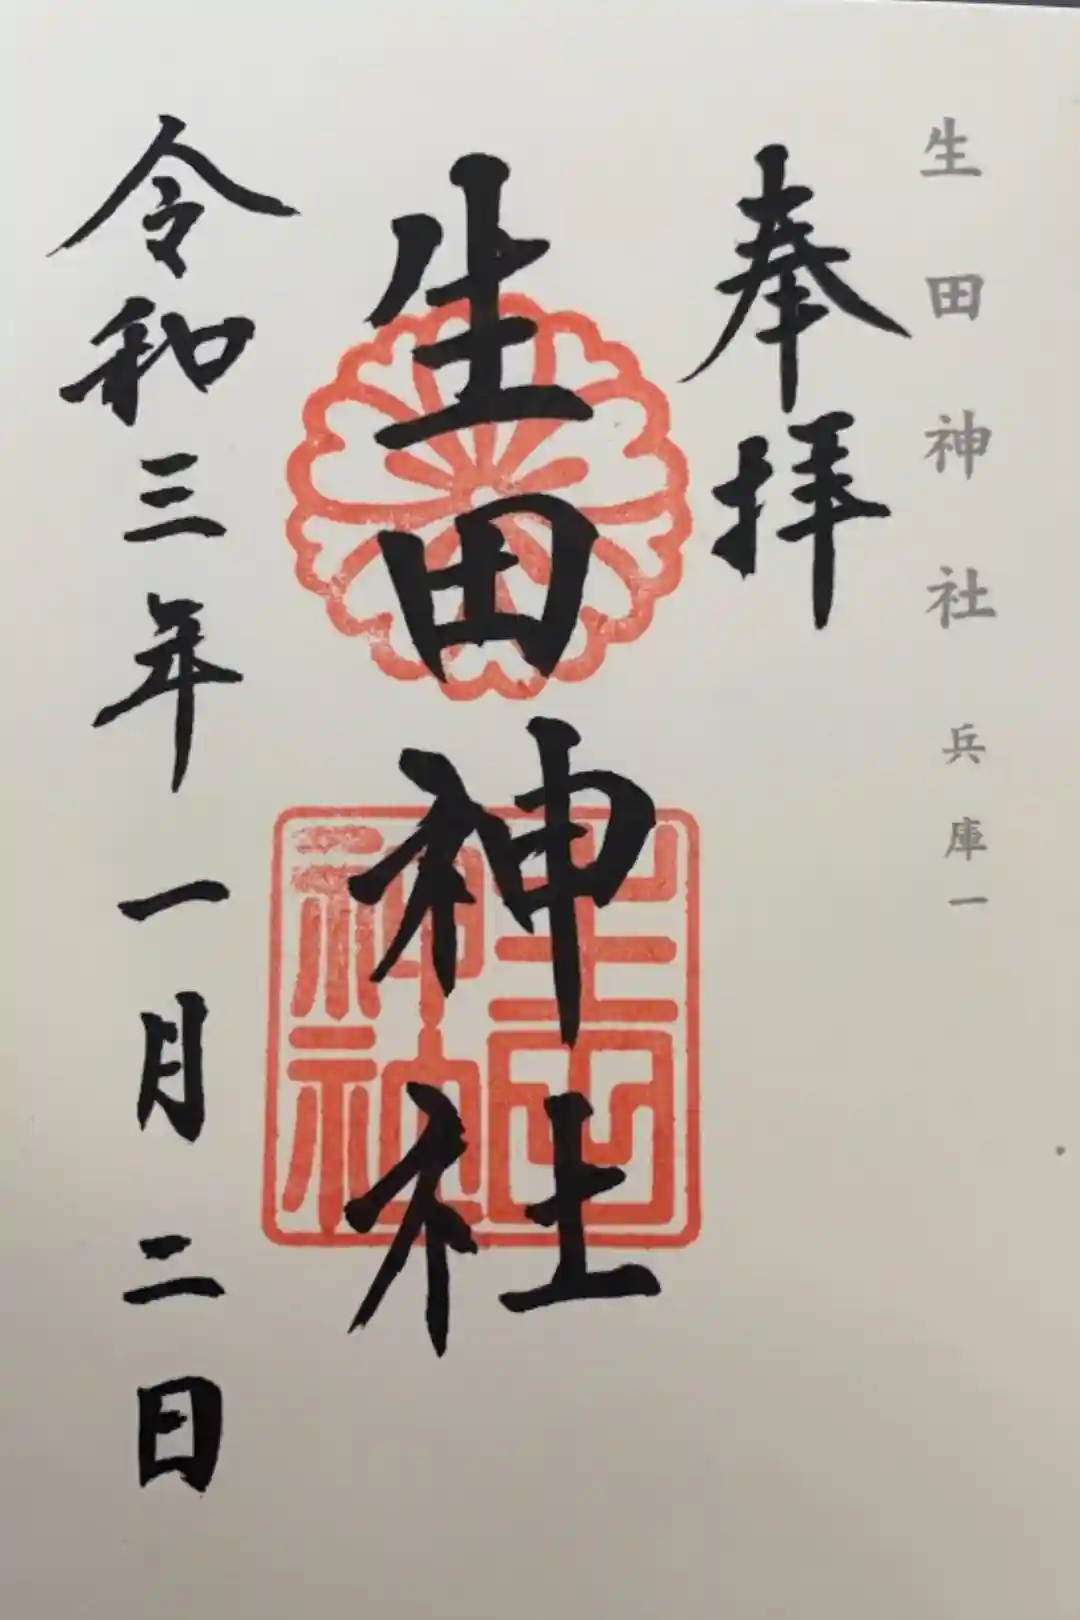 生田神社 兵庫一
奉拝
生田神社
生田神社
令和三年一月二日